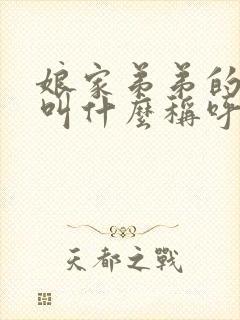 娘家弟弟的
叫什麼稱呼
天都之戰